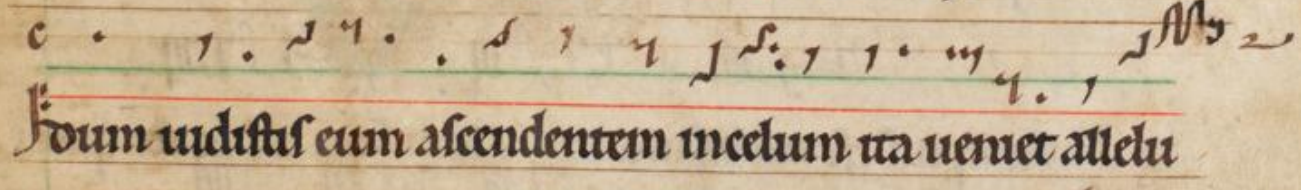 c
dum uidistis eum ascendentem in celum ita ueniet allelu